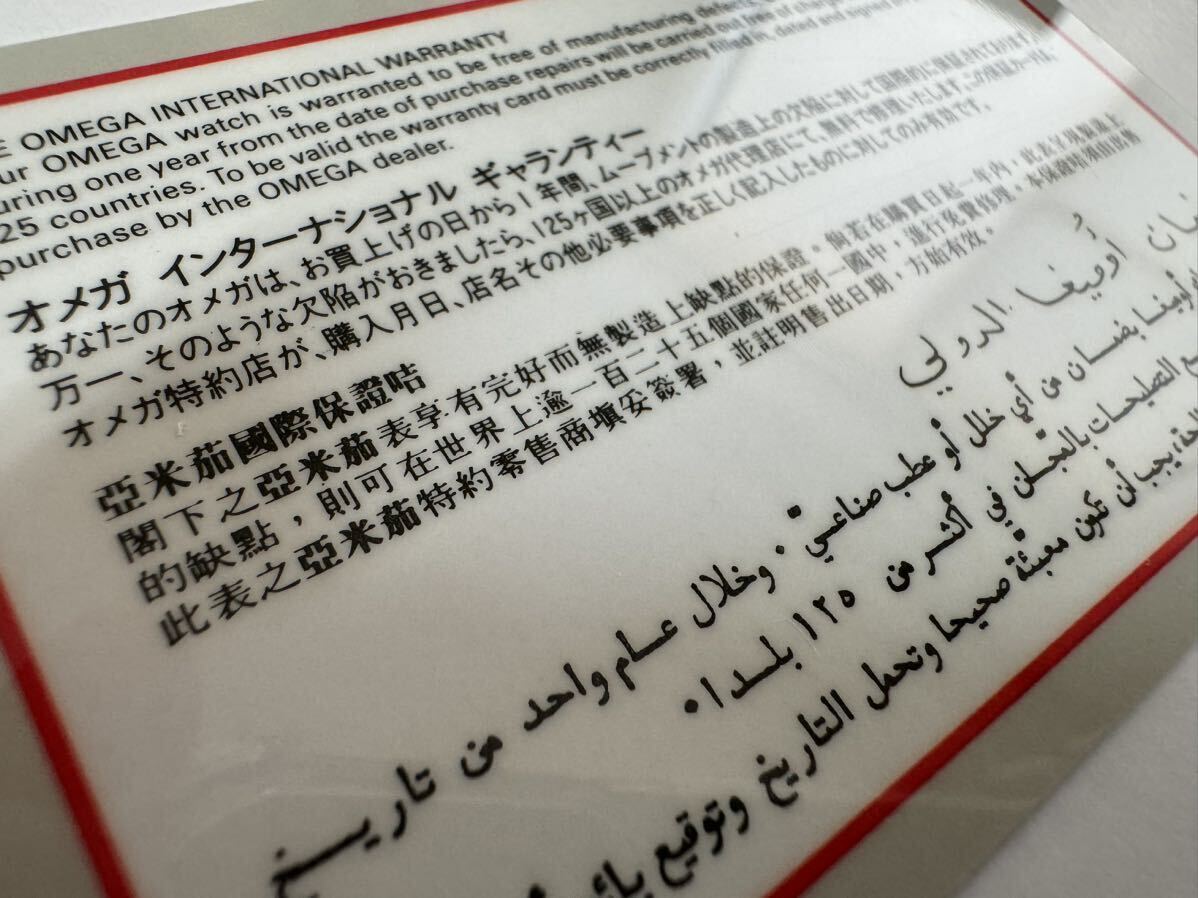 OMEGA INTERNATIONAL WARRANTY
OMEGA watch is warranted to be free of manufacturing
one year from the date of purchase repairs will be carried out free of
25 countries. To be valid the warranty card must be correctly filled in, dated and signed
purchase by the OMEGA dealer.
オメガ インターナショナル ギャランティー
あなたのオメガは、お買上げの日から1年間、ムーブメントの製造上の欠陥に対して国際的に保証されております。
万一、そのような欠陥がおきましたら、125ヶ国以上のオメガ代理店にて、無料で修理いたします。この保証カードは、
オメガ特約店が、購入月日、店名その他必要事項を正しく記入したものに対してのみ有効です。
亞米茄國際保證咭
閣下之亞米茄表享有完好而無製造上缺點的保證。倘若在購買日起一年內，此表呈現製造上
的缺點，則可在世界上逾一百二十五個國家任何一國中，進行免費修理。本保證咭須由出售
此表之亞米茄特約零售商填妥簽署，並註明售出日期，方始有效。
أوميغا الدولي
أوميغا بضمان من أي خلل أو عطب صناعي. وخلال عام واحد من تاريخ
التصليحات بالمجان في أكثر من ١٢٥ بلدا.
يجب أن تكون معبئة صحيحا وتحمل التاريخ وتوقيع